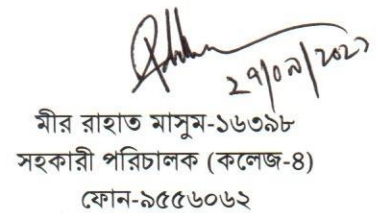 ২৭/০৯/২০২১
মীর রাহাত মাসুম-১৬৩৯৮
সহকারী পরিচালক (কলেজ-4)
ফোন-৯৫৫৬০৬২